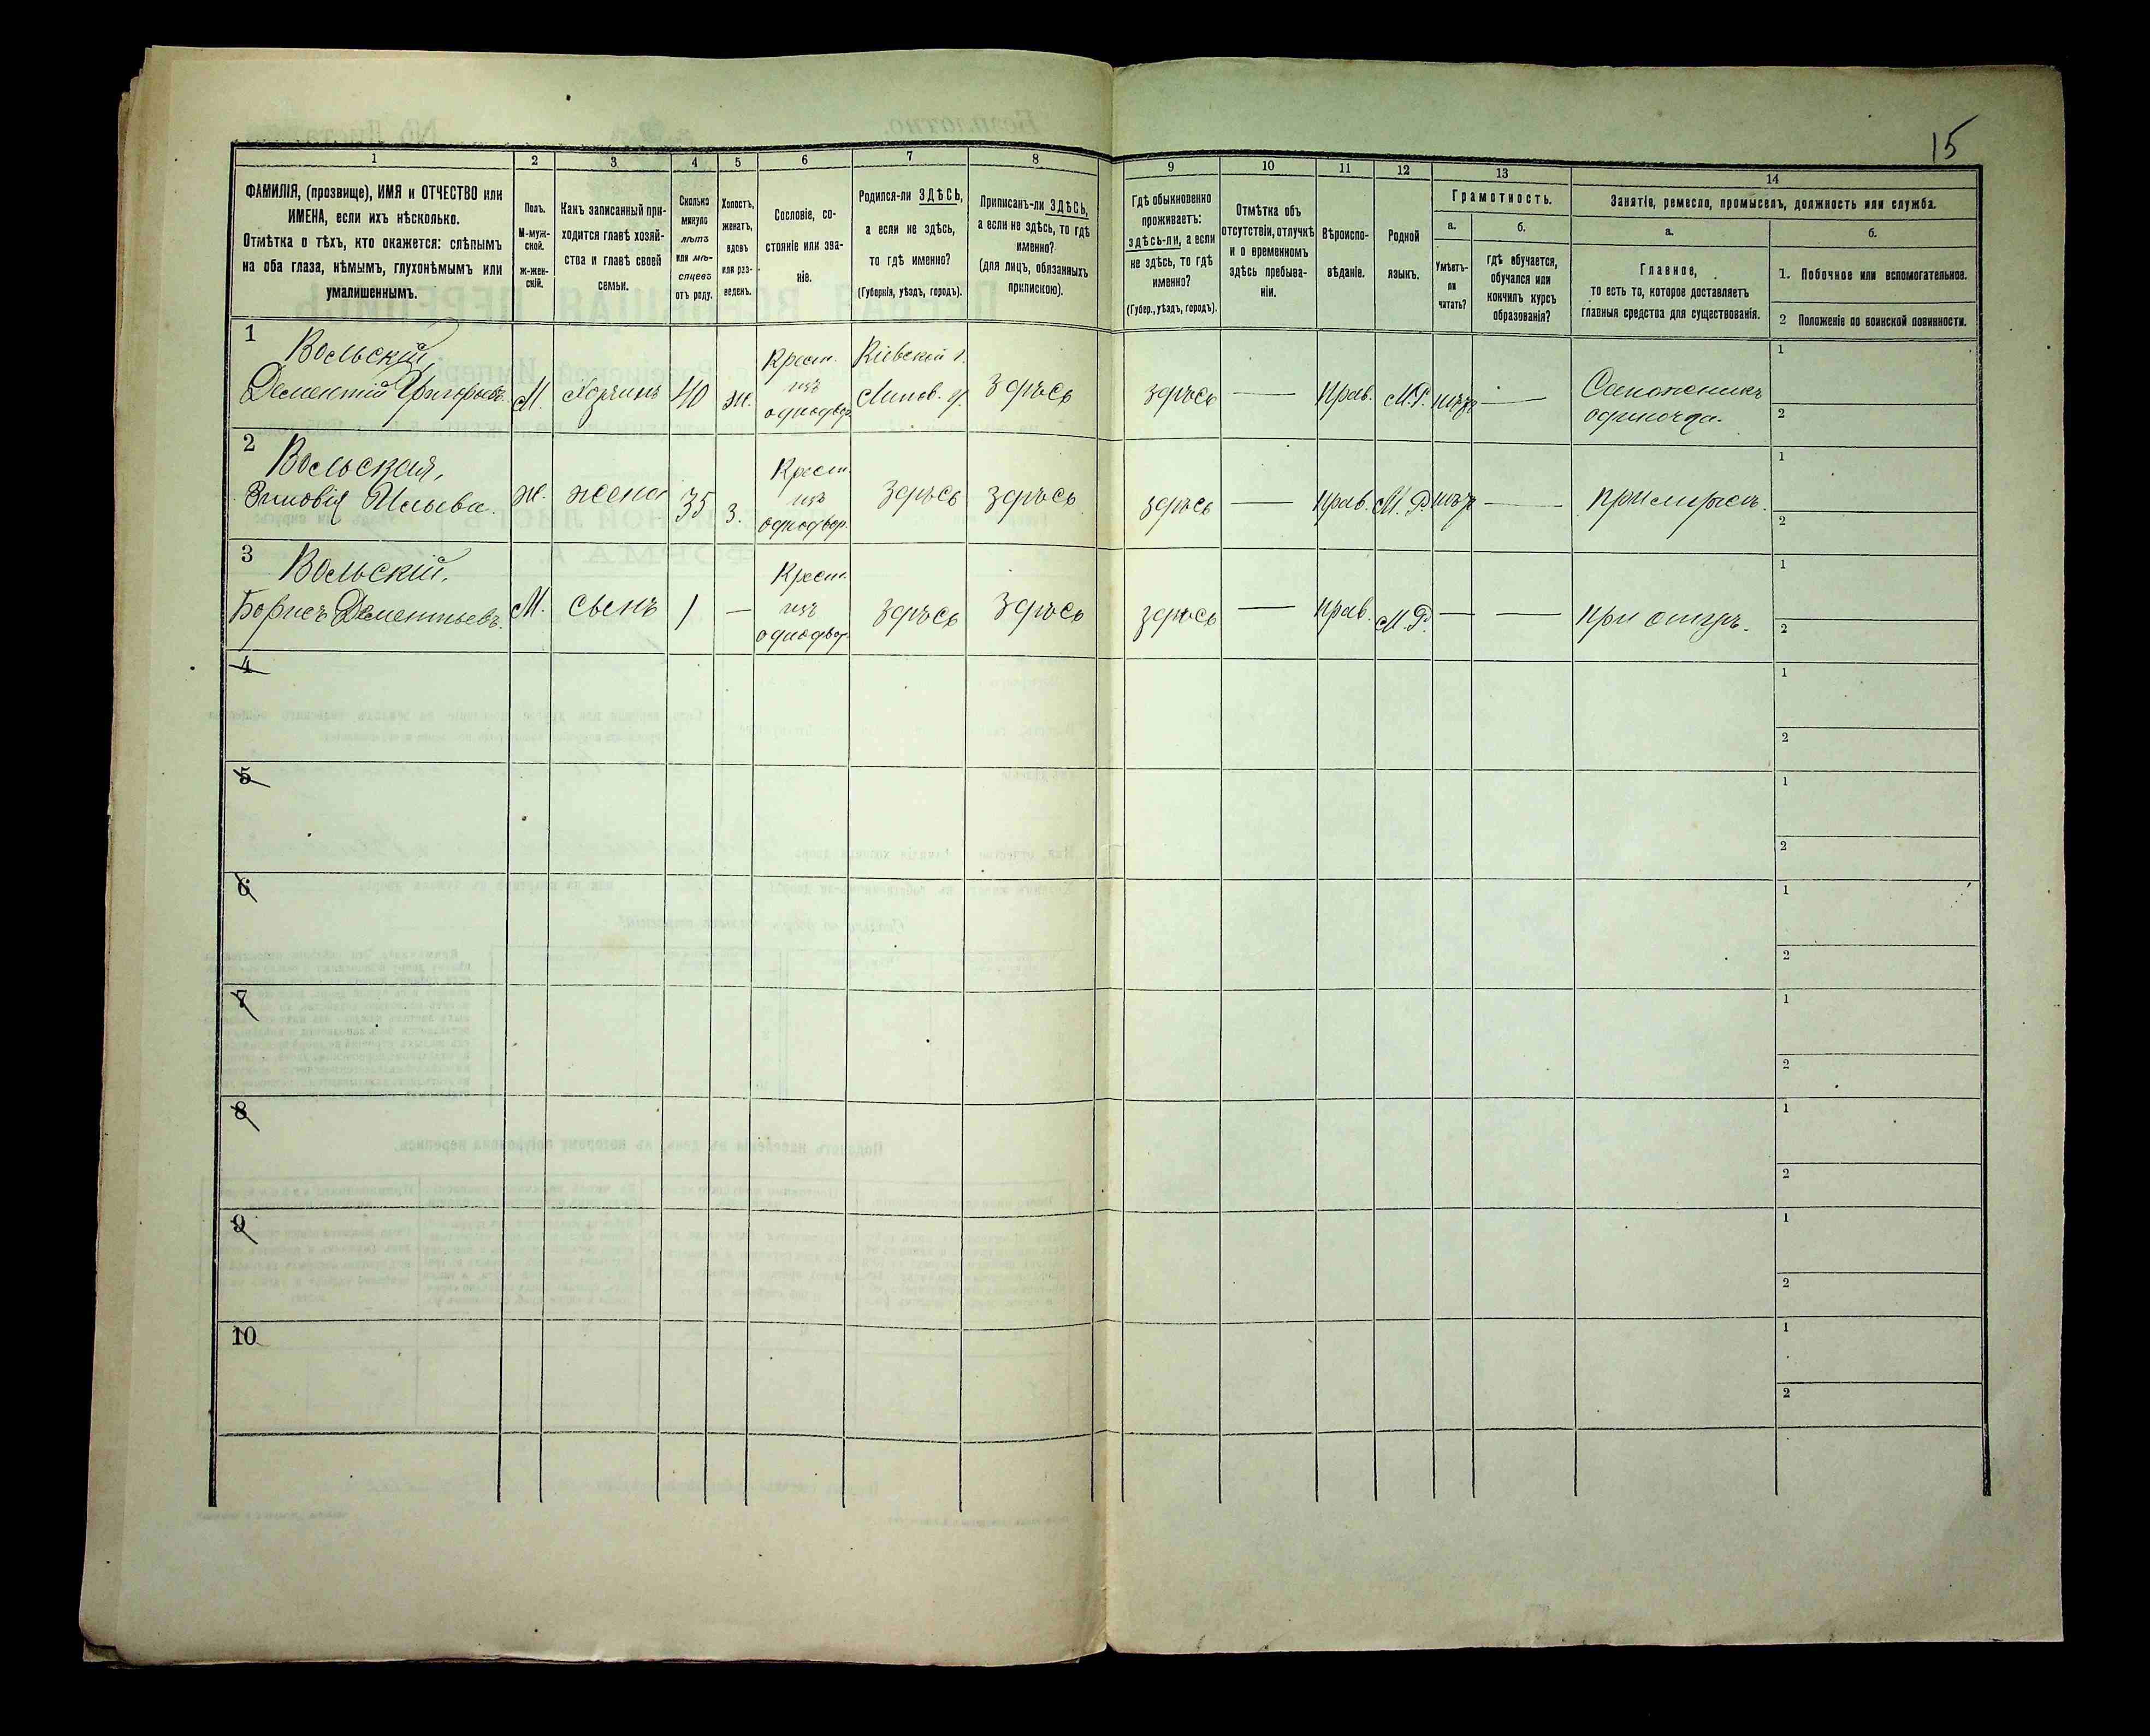 15
1 2 3 4 5 6 7 8 9 10 11 12 13 14
ФАМИЛІЯ, (прозвище), ИМЯ и ОТЧЕСТВО или
ИМЕНА, если ихъ нѣсколько.
Отмѣтка о тѣхъ, кто окажется: слѣпымъ
на оба глаза, нѣмымъ, глухонѣмымъ или
умалишеннымъ.
Полъ.
М-муж-
ской.
ж-жен-
скій.
Какъ записанный при-
ходится главѣ хозяй-
ства и главѣ своей
семьи.
Сколько
минуло
лѣтъ
или мѣ-
сяцевъ
отъ роду.
Холостъ,
женатъ,
вдовъ
или раз-
веденъ.
Сословіе, со-
стояніе или зва-
ніе.
Родился-ли ЗДѢСЬ,
а если не здѣсь,
то гдѣ именно?
(Губернія, уѣздъ, городъ).
Приписанъ-ли ЗДѢСЬ,
а если не здѣсь, то гдѣ
именно?
(для лицъ, обязанныхъ
припискою).
Гдѣ обыкновенно
проживаетъ:
здѣсь-ли, а если
не здѣсь, то гдѣ
именно?
(Губер., уѣздъ, городъ).
Отмѣтка объ
отсутствіи, отлучкѣ
и о временномъ
здѣсь пребыва-
ніи.
Вѣроиспо-
вѣданіе.
Родной
языкъ.
Грамотность.
а.
Умѣетъ-
ли
читать?
б.
гдѣ обучается,
обучался или
кончилъ курсъ
образованія?
Занятіе, ремесло, промыселъ, должность или служба.
а.
Главное,
то есть то, которое доставляетъ
главныя средства для существованія.
б.
1. Побочное или вспомогательное.
2 Положеніе по воинской повинности.
1
Вольскій,
Дементій Григорьевъ.
М.
Хозяинъ
40
ж.
Крест.
изъ
однодвор.
Кіевской г.
Липов. у.
здѣсь
здѣсь
—
Прав.
М.Р.
нѣтъ
—
Сапожникъ
одиночка.
1
2
2
Вольская,
Зиновія Ильева.
ж.
жена
35
З.
Крест.
изъ
однодвор.
здѣсь
здѣсь
здѣсь
—
Прав.
М.Р.
нѣтъ
—
при мужѣ.
1
2
3
Вольскій.
Борисъ Дементьевъ.
М.
сынъ
1
—
Крест.
изъ
однодвор.
здѣсь
здѣсь
здѣсь
—
Прав.
М.Р.
—
—
при отцѣ.
1
2
4
1
2
5
1
2
6
1
2
7
1
2
8
1
2
9
1
2
10
1
2